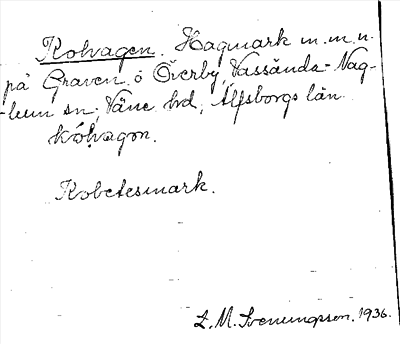 Kolvagen. Hagmark m.m.n.
på Graven ö Överby, Vassända-Nag-
-lum sn; Väne hd, Älfsborgs län.
kólvagon.
Kobetesmark.
L. M. Svenungsson. 1936.